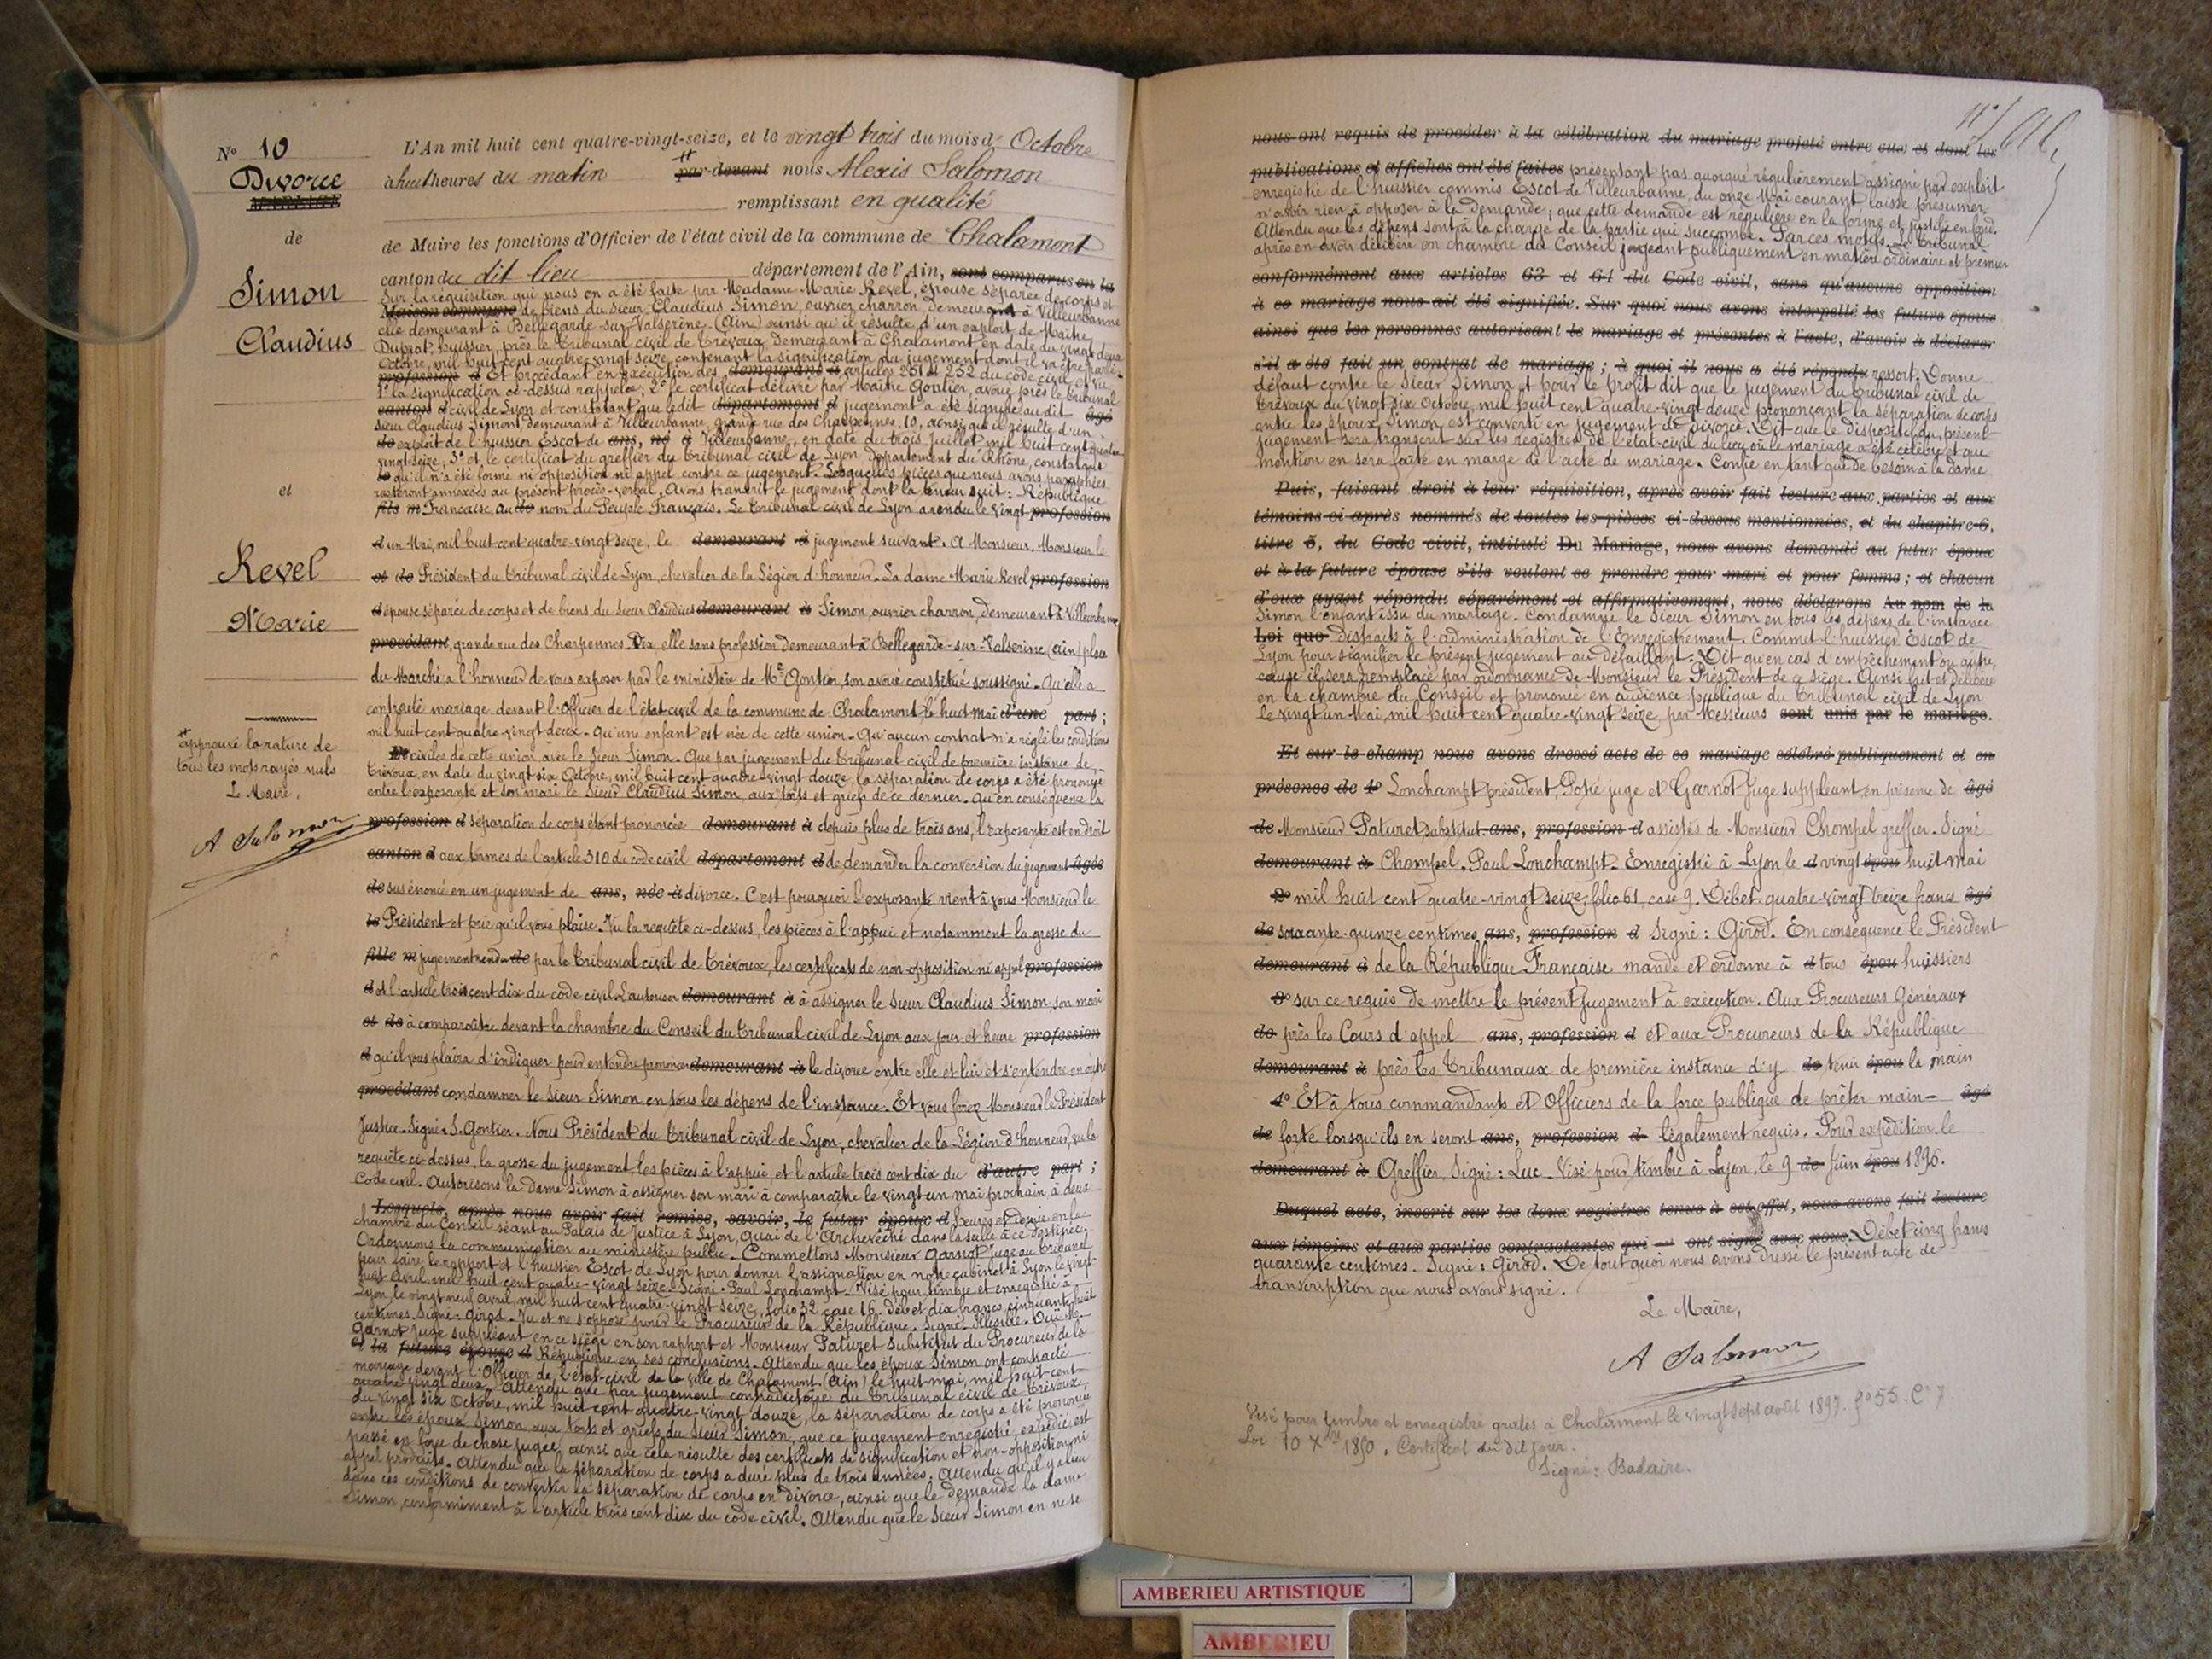 N° 10
Divorce
MARIAGE
de
Simon
Claudius
et
Revel
Marie
approuvé la rature de
tous les mots rayés nuls
Le Maire,
A Salomon
L'An mil huit cent quatre-vingt-seize, et le vingt trois du mois d' Octobre
à huit heures du matin par-devant nous Alexis Salomon
remplissant en qualité
de Maire les fonctions d'Officier de l'état civil de la commune de Chalamont
canton du dit lieu département de l'Ain, sont comparus en la
Sur la réquisition qui nous en a été faite par Madame Marie Revel, épouse séparée de corps et
Maison commune de biens du sieur Claudius Simon, ouvrier charron, demeurant à Villeurbanne
elle demeurant à Bellegarde-sur-Valserine (Ain) ainsi qu'il résulte d'un exploit de Maître
Duprat, huissier, près le tribunal civil de Trévoux, demeurant à Chalamont en date du vingt deux
Octobre, mil huit cent quatre-vingt seize, contenant la signification du jugement dont il va être parlé.
profession d Et procédant en exécution des demeurant à articles 251 et 252 du code civil, et vu
1° la signification ci-dessus rappelée; 2° le certificat délivré par Maître Gontier, avoué près le tribunal
canton d civil de Lyon et constatant que le dit département d jugement a été signifié au dit âgé
sieur Claudius Simont, demeurant à Villeurbanne, grande rue des Charpennes, 10, ainsi qu'il résulte d'un
de exploit de l'huissier Escot de ans, né à Villeurbanne, en date du trois juillet mil huit cent quatre
vingt seize, 3° et le certificat du greffier du tribunal civil de Lyon, département du Rhône, constatant
le qu'il n'a été formé ni opposition ni appel contre ce jugement. Lesquelles pièces que nous avons paraphées
resteront annexées au présent procès-verbal, Avons transcrit le jugement dont la teneur suit: République
fils m Française, au de nom du Peuple Français. Le tribunal civil de Lyon a rendu le vingt profession
d un Mai, mil huit cent quatre-vingt seize, le demeurant à jugement suivant. A Monsieur, Monsieur le
et de Président du tribunal civil de Lyon, chevalier de la Légion d'honneur. La dame Marie Revel profession
d épouse séparée de corps et de biens du sieur Claudius demeurant à Simon, ouvrier charron, demeurant à Villeurbanne
procédant, grande rue des Charpennes. Dix, elle sans profession demeurant à Bellegarde-sur-Valserine (ain) place
du Marché, a l'honneur de vous exposer par le ministère de Me Gontier, son avoué constitué soussigné. Qu'elle a
contracté mariage devant l'Officier de l'état civil de la commune de Chalamont le huit Mai d'une part;
mil huit cent quatre-vingt deux. Qu'une enfant est née de cette union. Qu'aucun contrat n'a réglé les conditions
Et civiles de cette union avec le sieur Simon. Que par jugement du tribunal civil de première instance de
Trévoux, en date du vingt six Octobre, mil huit cent quatre-vingt douze, la séparation de corps a été prononcée
entre l'exposante et son mari le sieur Claudius Simon, aux torts et griefs de ce dernier. Qu'en conséquence la
profession d séparation de corps étant prononcée demeurant à depuis plus de trois ans, l'exposante est en droit
canton d aux termes de l'article 310 du code civil département d de demander la conversion du jugement âgée
de sus énoncé en un jugement de ans, née à divorce. C'est pourquoi l'exposante vient à vous Monsieur le
le Président et prie qu'il vous plaise. Vu la requête ci-dessus, les pièces à l'appui et notamment la grosse du
fille m jugement rendu de par le tribunal civil de Trévoux, les certificats de non opposition ni appel profession
d et l'article trois cent dix du code civil. L'autoriser demeurant à à assigner le sieur Claudius Simon, son mari
et de à comparaître devant la chambre du Conseil du tribunal civil de Lyon aux jour et heure profession
d qu'il vous plaira d'indiquer pour entendre prononcer demeurant à le divorce entre elle et lui et s'entendre en outre
procédant condamner le sieur Simon en tous les dépens de l'instance. Et vous ferez Monsieur le Président
Justice. Signé: S. Gontier. Nous Président du tribunal civil de Lyon, chevalier de la Légion d'honneur, vu la
requête ci-dessus, la grosse du jugement, les pièces à l'appui et l'article trois cent dix du d'autre part;
Code civil. Autorisons la dame Simon à assigner son mari à comparaître le vingt-un mai prochain à deux
Lesquels, après nous avoir fait remise, savoir, le futur époux d heures et demie en la
chambre du Conseil séant au Palais de Justice à Lyon, Quai de l'Archevêché dans la salle à ce destinée;
Ordonnons la communication au ministère public. Commettons Monsieur Garnot Juge au tribunal
pour faire le rapport et l'huissier Escot de Lyon pour donner l'assignation en notre cabinet à Lyon le vingt-
huit Avril, mil huit cent quatre-vingt seize. Signé. Paul Lonchampt. Visé pour timbre et enregistré à
Lyon, le vingt neuf avril, mil huit cent quatre-vingt seize, folio 32 case 16. débet dix francs cinquante-huit
centimes. Signé: Girod. Vu et ne s'oppose pour le Procureur de la République. Signé. Illisible. Ouï Mr
Garnot juge suppléant en ce siège en son rapport et Monsieur Paturet Substitut du Procureur de la
et la future épouse d République en ses conclusions. Attendu que les époux Simon ont contracté
mariage devant l'Officier de l'état-civil de la ville de Chalamont (Ain) le huit mai, mil huit-cent
quatre-vingt deux. Attendu que par jugement contradictoire du tribunal civil de Trévoux,
du vingt six Octobre, mil huit cent quatre-vingt douze, la séparation de corps a été prononcée
entre les époux Simon aux torts et griefs du sieur Simon, que ce jugement enregistré, expédié, est
passé en force de chose jugée, ainsi que cela résulte des certificats de signification et non-opposition ni
appel produits. Attendu que la séparation de corps a duré plus de trois années. Attendu qu'il y a lieu
dans ces conditions de convertir la séparation de corps en divorce, ainsi que le demande la dame
Simon, conformément à l'article trois cent dix du code civil. Attendu que le sieur Simon en ne se
nous ont requis de procéder à la célébration du mariage projeté entre eux et dont les
publications et affiches ont été faites présentant pas quoique régulièrement assigné par exploit
enregistré de l'huissier commis Escot de Villeurbanne, du onze Mai courant laisse présumer
n'avoir rien à opposer à la demande; que cette demande est régulière en la forme et justifiée en fond.
Attendu que les dépens sont à la charge de la partie qui succombe. Par ces motifs. Le tribunal
après en avoir délibéré en chambre du Conseil jugeant publiquement en matière ordinaire et premier
conformément aux articles 63 et 64 du Code civil, sans qu'aucune opposition
à ce mariage nous ait été signifiée. Sur quoi nous avons interpellé les futurs époux
ainsi que les personnes autorisant le mariage et présentes à l'acte, d'avoir à déclarer
s'il a été fait un contrat de mariage; à quoi il nous a été répondu ressort. Donne
défaut contre le sieur Simon et pour le profit dit que le jugement du tribunal civil de
Trévoux du vingt six Octobre, mil huit cent quatre-vingt douze prononçant la séparation de corps
entre les époux Simon est converti en jugement de divorce. Dit que le dispositif du présent
jugement sera transcrit sur les registres de l'état-civil du lieu où le mariage a été célébré et que
mention en sera faite en marge de l'acte de mariage. Confie en tant que de besoin à la dame
Puis, faisant droit à leur réquisition, après avoir fait lecture aux parties et aux
témoins ci-après nommés de toutes les pièces ci-dessus mentionnées, et du chapitre 6,
titre 5, du Code civil, intitulé Du Mariage, nous avons demandé au futur époux
et à la future épouse s'ils veulent se prendre pour mari et pour femme; et chacun
d'eux ayant répondu séparément et affirmativement, nous déclarons Au nom de la
Simon l'enfant issu du mariage. Condamne le sieur Simon en tous les dépens de l'instance
Loi que distraits à l'administration de l'Enregistrement. Commet l'huissier Escot de
Lyon pour signifier le présent jugement au défaillant. Dit qu'en cas d'empêchement ou autre,
cause il sera remplacé par ordonnance de Monsieur le Président de ce siège. Ainsi fait et délibéré
en la chambre du Conseil et prononcé en audience publique du tribunal civil de Lyon
le vingt un Mai, mil huit cent quatre-vingt seize, par Messieurs sont unis par le mariage.
Et sur-le-champ nous avons dressé acte de ce mariage célébré publiquement et en
présence de 1° Lonchampt président, Potié juge et Garnot Juge suppléant en présence de âgé
de Monsieur Paturet, substitut ans, profession d assistés de Monsieur Chompel greffier. Signé
demeurant à Chompel. Paul Lonchampt. Enregistré à Lyon le d vingt épou huit mai
2° mil huit cent quatre-vingt seize, folio 61, case 9. Débet quatre-vingt treize francs âgé
de soixante-quinze centimes ans, profession d Signé: Girod. En conséquence le Président
demeurant à de la République Française mande et ordonne à d tous épou huissiers
3° sur ce requis de mettre le présent jugement à exécution. Aux Procureurs Généraux
de près les Cours d'appel ans, profession d et aux Procureurs de la République
demeurant à près les tribunaux de première instance d'y de tenir épou la main
4° Et à tous commandants et Officiers de la force publique de prêter main- âgé
de forte lorsqu'ils en seront ans, profession d légalement requis. Pour expédition le
demeurant à Greffier, Signé: Luc. Visé pour timbre à Lyon, le 9 de Juin épou 1896.
Duquel acte, inscrit sur les deux registres tenus à cet effet, nous avons fait lecture
aux témoins et aux parties contractantes qui ont signé avec nous. Débet cinq francs
quarante centimes. Signé: Girod. De tout quoi nous avons dressé le présent acte de
transcription que nous avons signé.
Le Maire,
A Salomon
Visé pour timbre et enregistré gratis à Chalamont le vingt sept août 1897. f° 55. C° 7.
Loi 10 Xbre 1850. Certificat du dit jour.
Signé: Badaire.
AMBERIEU ARTISTIQUE
AMBERIEU